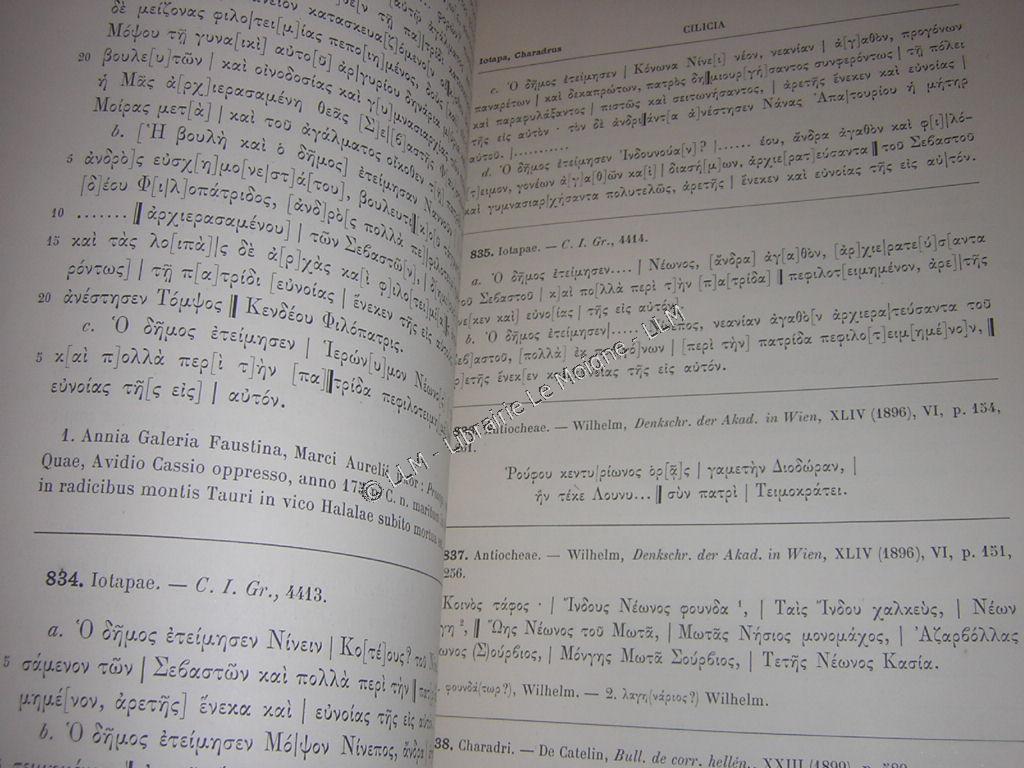 δὲ μείζονας φιλο[τει[μ]ίας πεπο[ιη]μένος,
Μόψου τῇ γυνα[ικὶ] αὐτο[ῦ] ἀρ|γυρίου δηνάρια
20 βουλε[υ]τῶν | καὶ οἰνοδοσίας καὶ γ[υ]μνασιαρχίας
ἡ Μᾶς ἀ[ρχ]ιερασαμένη θεᾶς [Σ]ε[β]αστῆς
Μοίρας μετ[ὰ] | καὶ τοῦ ἀγάλματος οἴκοθεν
b. [Ἡ βουλὴ καὶ ὁ δῆμος] ἐτείμησαν
5 ἀνδρὸ]ς εὐσχ[η]μο[νε|στ]ά[του], βουλευτοῦ
[δ]έου Φ[ι|λ]οπάτριδος, [ἀνδ]ρὸ[ς πολλὰ
10 ....... ‖ ἀρχιερασαμένου] | τῶν Σεβαστῶ[ν],
15 καὶ τὰς λο[ιπὰ]|ς δὲ ἀ[ρ]χὰς κα[ὶ φ]ιλο[τει
ρόντως] | τῇ π[α]τρίδι [εὐνοίας | ἕνεκεν τῆς εἰς αὐτούς,
20 ἀνέστησεν Τόμψος ‖ Κενδέου Φιλόπατρις.
c. Ὁ δῆμος ἐτείμησεν | Ἱερών[υ]μον Νέωνος
5 κ[αὶ π]ολλὰ περ[ὶ τ]ὴν [πα]‖τρίδα
εὐνοίας τῆ[ς εἰς] | αὐτόν.
1. Annia Galeria Faustina, Marci Aurelii
Quae, Avidio Cassio oppresso, anno
in radicibus montis Tauri in vico Halalae subito
834. Iotapae. — C. I. Gr., 4413.
a. Ὁ δῆμος ἐτείμησεν Νίνειν | Κο[τέ]ους?
5 σάμενον τῶν | Σεβαστῶν καὶ πολλὰ περὶ τὴν
μημέ[νον, ἀρετῆς] ἕνεκα καὶ | εὐνοίας τῆς εἰς
b. Ὁ δῆμος ἐτείμησεν Μό|ψον Νίνεπος,
CILICIA
Iotapa, Charadrus
c. Ὁ δῆμος ἐτείμησεν | Κόνωνα Νίνε[ι] νέον, νεανίαν | ἀ[γ]αθὸν, προγόνων
παναρέτων | καὶ δεκαπρώτων, πατρὸς δη‖μιουρ[γή]σαντος συνφερόντως | τῇ πόλει
καὶ παραφυλάξαντος | πιστῶς καὶ σειτωνήσαντος, | ἀρετῆς ἕνεκεν καὶ εὐνοίας |
τῆς εἰς αὐτὸν · τὸν δὲ ἀνδρι‖άντα ἀ]νέστησεν Νάνας Ἀπα|τουρίου ἡ μήτηρ
αὐτοῦ. |..........
d. Ὁ δῆμος ἐτείμησεν Ἰνδουνούα[ν]? |...... έου, ἄνδρα ἀγαθὸν καὶ φ[ι]|λό-
[τ]ειμον, γονέων ἀ[γ]α[θ]ῶν κα[ὶ] | διασή[μ]ων, ἀρχιε[ρατ]εύσαντα ‖ τοῦ Σεβαστοῦ
καὶ γυμνασιαρ|χήσαντα πολυτελῶς, ἀρετῆς | ἕνεκεν καὶ εὐνοίας τῆς εἰς αὐ|τόν.
835. Iotapae. — C. I. Gr., 4414.
a. Ὁ δῆμος ἐτείμησεν.... | Νέωνος, [ἄνδρα] ἀγ[α]θὸν, [ἀρ]χιε|ρατε[ύ]σ[αντα
τοῦ Σεβαστοῦ | κ]αὶ πο[λλὰ περὶ τὴν [π]α[τρίδα] ‖ πεφιλοτ[ειμημένον, ἀρε]|τῆς
ἕνε]κεν καὶ εὐνο[ίας | τῆς εἰς αὐτόν].
b. Ὁ δῆμος ἐτείμησεν|...... επος, νεανίαν ἀγαθὸ[ν ἀρχιερα|τεύσαντα τοῦ
Σεβ]αστοῦ, [πολλὰ] ἐκ προγό]νων | [περὶ τὴν] πατρίδα πεφιλο[τ]ειμ[ημέ]νο]ν, ‖
ἀρ]ετῆς ἕνεκ]εν καὶ εὐνοίας τῆς εἰς αὐτόν.
Antiocheae. — Wilhelm, Denkschr. der Akad. in Wien, XLIV (1896), VI, p. 154,
Ῥούφου κεντυ|ρίωνος ὁρ[ᾷ]ς | γαμετὴν Διοδώραν, |
ἣν τέκε Λουνυ... ‖ σὺν πατρὶ | Τειμοκράτει.
837. Antiocheae. — Wilhelm, Denkschr. der Akad. in Wien, XLIV (1896), VI, p. 151,
256.
Κοινὸς τάφος · | Ἴνδους Νέωνος φουνδα ¹, | Ταὶς Ἴνδου χαλκεὺς, | Νέων
γη ², ‖ Ὤης Νέωνος τοῦ Μωτᾶ, | Μωτᾶς Νήσιος μονομάχος, | Ἀζαρβόλλας
ωνος (Σ)ούρβιος, | Μόνγης Μωτᾶ Σούρβιος, | Τετῆς Νέωνος Κασία.
φουνδά(τωρ?), Wilhelm. — 2. λαγη(νάριος?) Wilhelm.
38. Charadri. — De Catelin, Bull. de corr. hellén., XXIII (1899), p.
© LLM - Librairie Le Moione - LLM